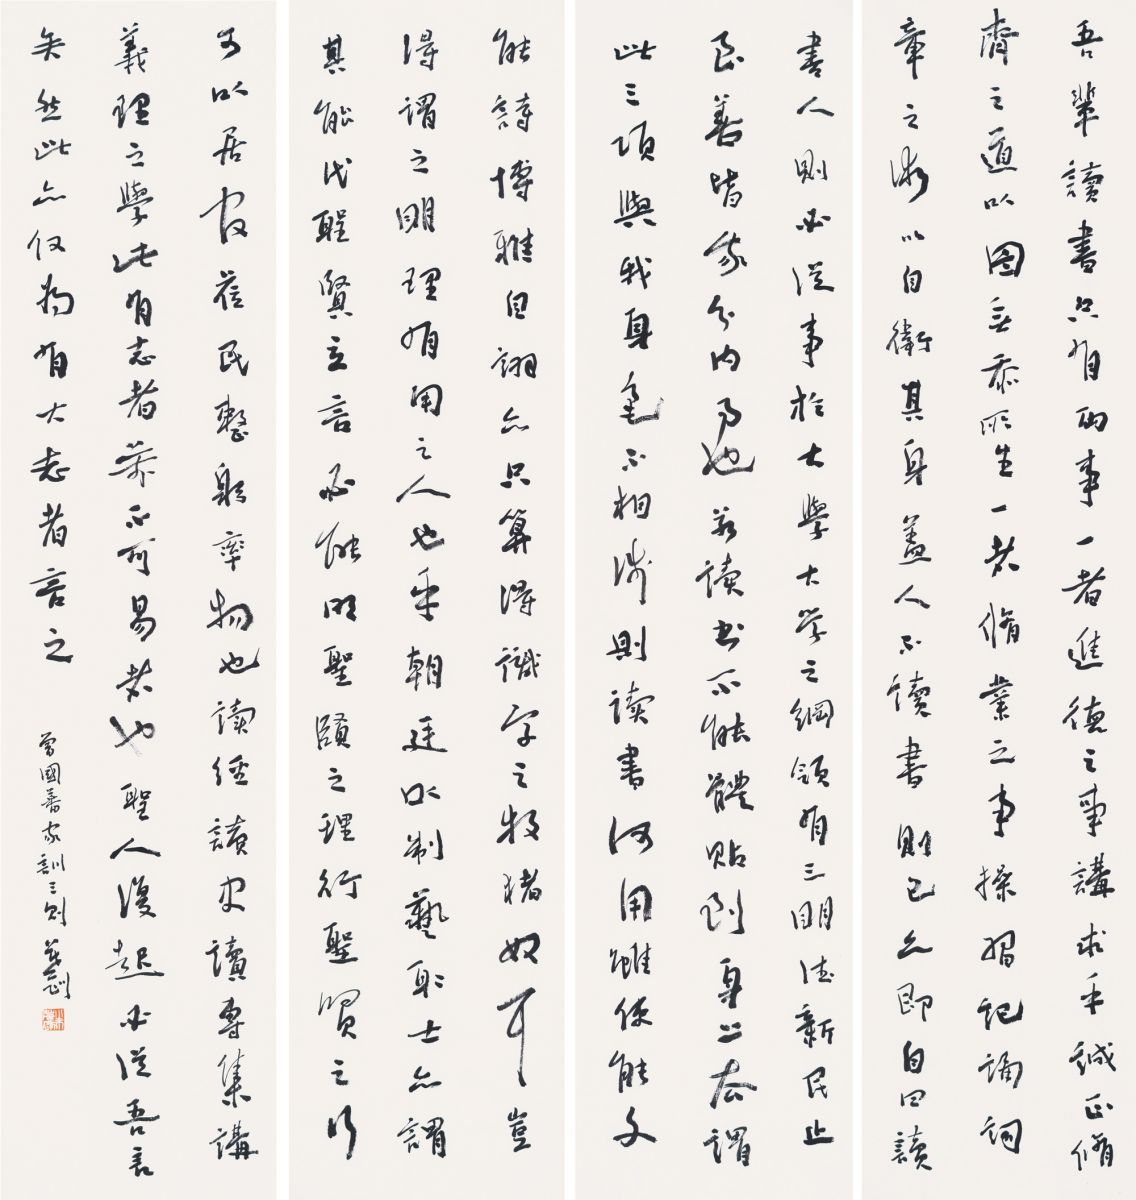 吾輩讀書只有兩事一者進德之事講求乎誠正脩
齊之道以圖無忝所生一者脩業之事操習記誦詞
章之術以自衛其身蓋人不讀書則已亦即自曰讀
書人則必從事於大學大學之綱領有三明德新民止
至善皆我分內事也若讀書不能體貼到身上去謂
此三項與我身毫不相涉則讀書何用雖使能文
能詩博雅自詡亦只算得識字之牧猪奴耳豈
得謂之明理有用之人也乎朝廷以制藝取士亦謂
其能代聖賢立言必能明聖賢之理行聖賢之行
可以居官蒞民整躬率物也讀經讀史讀專集講
義理之學此有志者萬不可易者也聖人復起必從吾言
矣然此亦仅為有大志者言之
曾國藩家訓三則